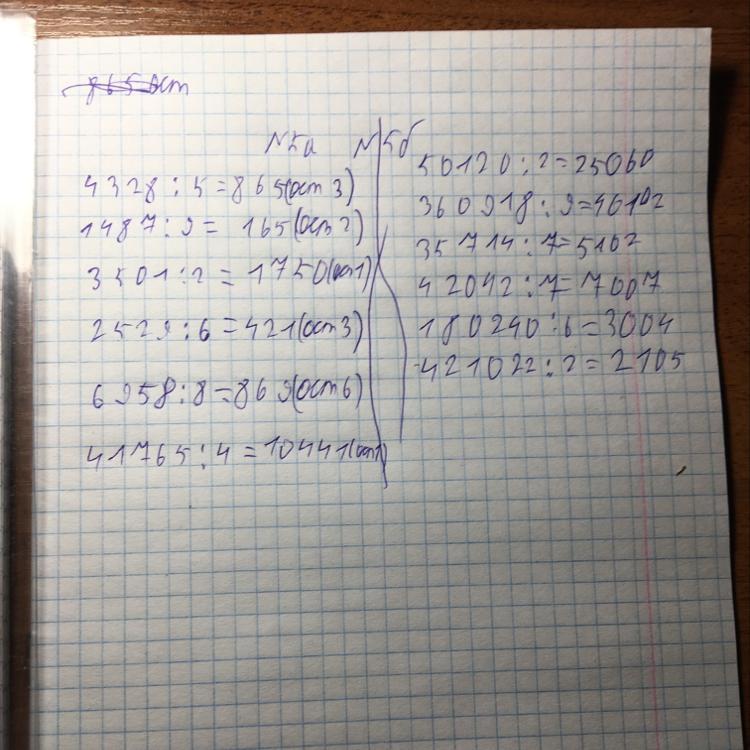 865 ост
№5а
4328 : 5 = 865(ост 3)
1487 : 9 = 165(ост 2)
3501 : 2 = 1750(ост1)
2529 : 6 = 421(ост3)
6958 : 8 = 869(ост6)
41765 : 4 = 10441(ост1)
№5б
50120 : 2 = 25060
360918 : 9 = 40102
35714 : 7 = 5102
42042 : 7 = 7007
180240 : 6 = 3004
421022 : 2 = 2105